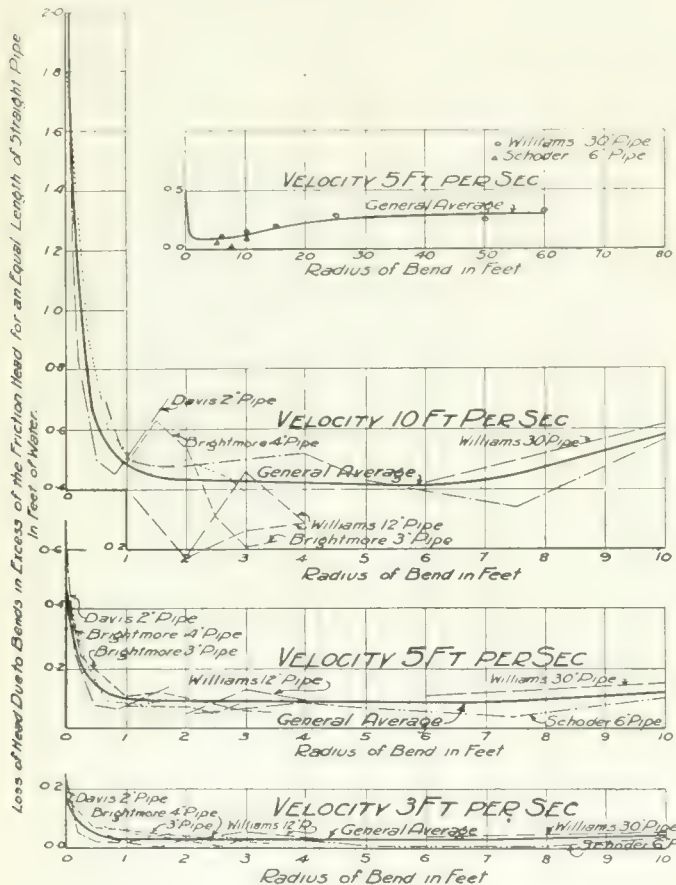 Loss of Head Due to Bends in Excess of the Friction Head for an Equal Length of Straight Pipe
In Feet of Water.
2.0
1.8
1.6
1.4
1.2
1.0
0.8
0.6
0.4
0.2
Williams 30" Pipe
Schoder 6" Pipe
VELOCITY 5 FT PER SEC
General Average
0.5
0.0
0 10 20 30 40 50 60 70 80
Radius of Bend in Feet
Davis 2" Pipe
VELOCITY 10 FT PER SEC
Brightmore 4" Pipe
Williams 30" Pipe
General Average
Williams 12" Pipe
Brightmore 3" Pipe
0 1 2 3 4 5 6 7 8 9 10
Radius of Bend in Feet
0.6
0.4
0.2
0.0
Davis 2" Pipe
Brightmore 4" Pipe
Brightmore 3" Pipe
VELOCITY 5 FT PER SEC
Williams 12" Pipe
Williams 30" Pipe
General Average
Schoder 6" Pipe
0 1 2 3 4 5 6 7 8 9 10
Radius of Bend in Feet
0.2
0.0
Davis 2" Pipe
VELOCITY 3 FT PER SEC
Brightmore 4" Pipe
3" Pipe
Williams 12" P.
General Average
Williams 30" Pipe
Schoder 6" P
0 1 2 3 4 5 6 7 8 9 10
Radius of Bend in Feet